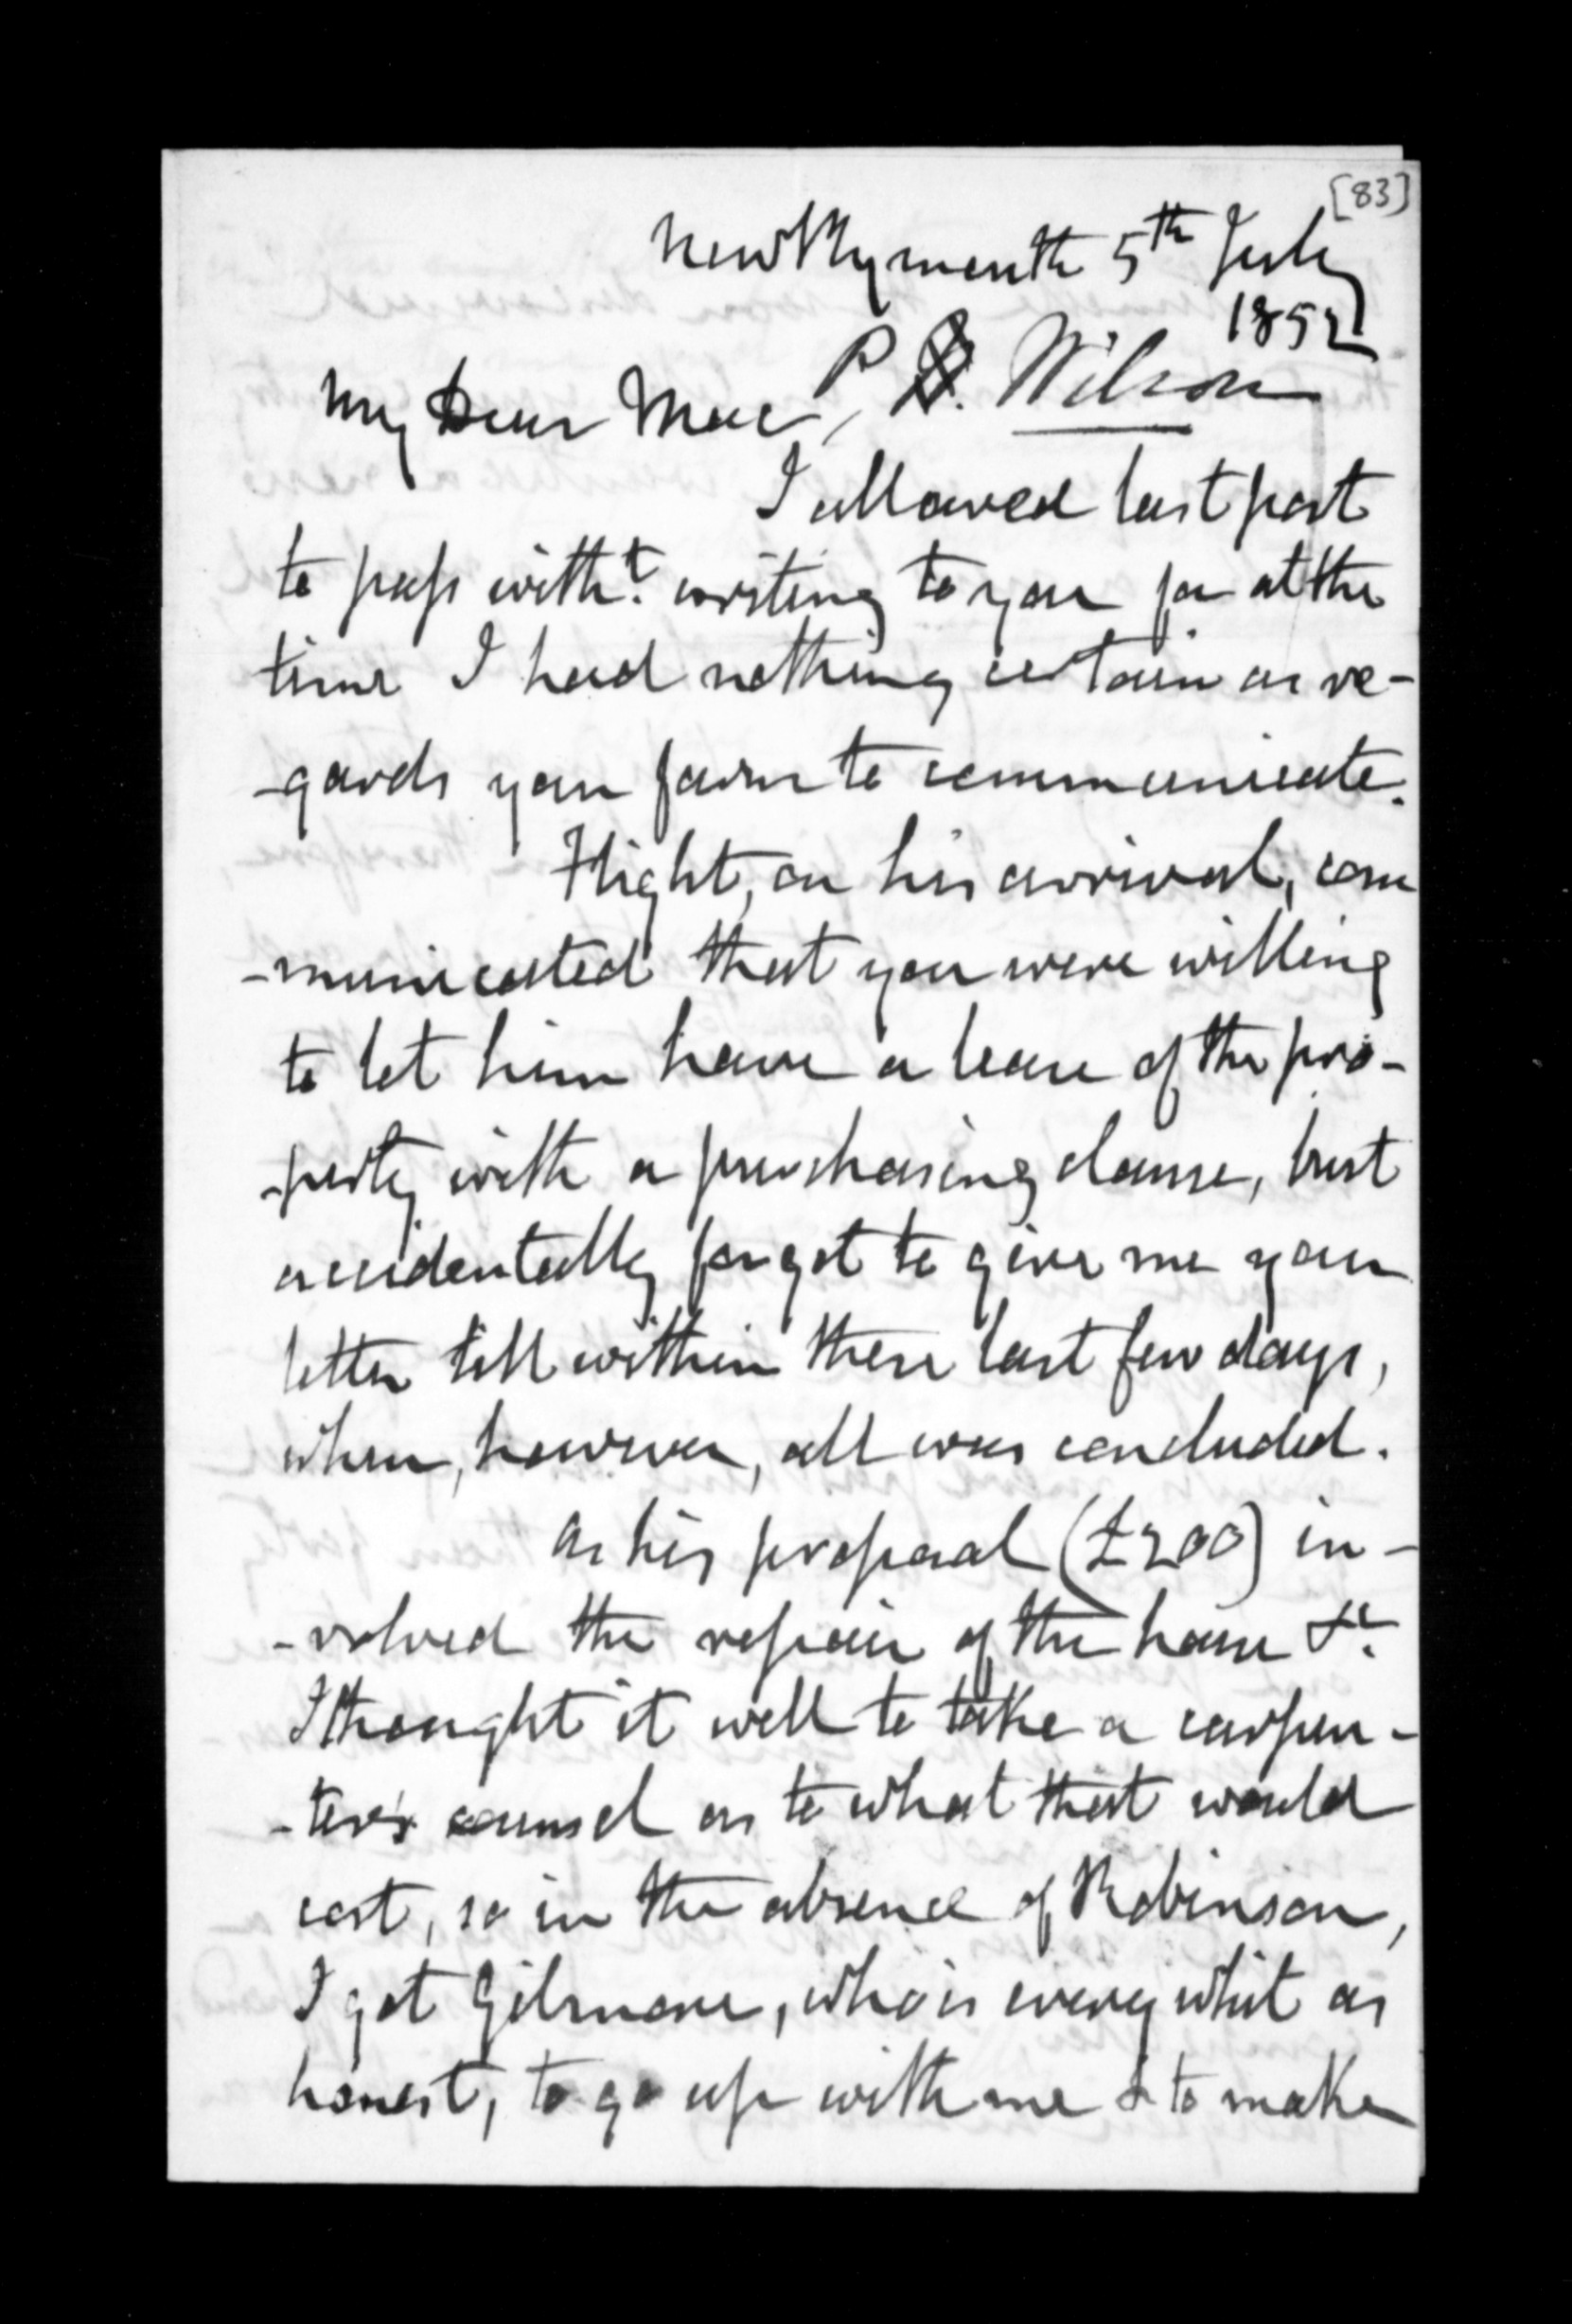 [83]
New Plymouth 5th July
1852
P S. Wilson
My Dear Mac,
I allowed last post
to pass witht. writing to you for at the
time I had nothing certain as re-
-gards your farm to communicate.
Hight, on his arrival, com
-municated that you were willing
to let him have a lease of the pro-
-perty with a purchasing clause, but
accidentally forgot to give me your
letter till within these last few days,
when, however, all was concluded.
As his proposal (£200) in-
-volved the repair of the house &c.
I thought it well to take a carpen-
-ter's counsel as to what that would
cost, so in the absence of Robinson,
I got Gilmore, who is every whit as
honest, to go up with me & to make